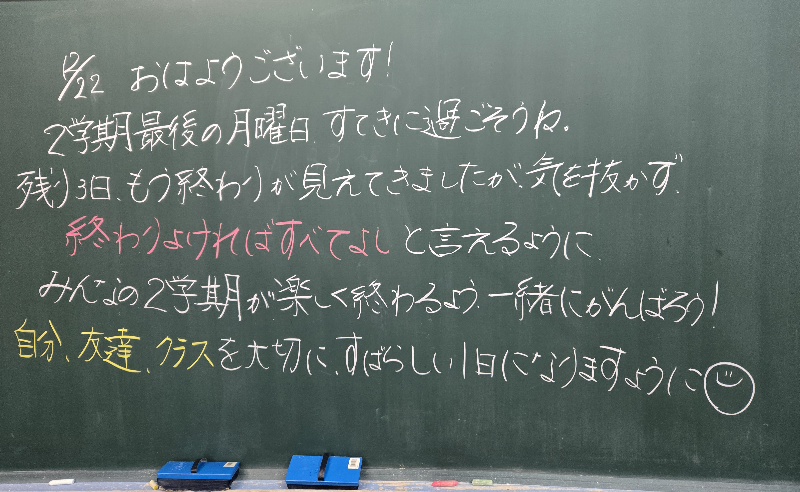 12/22 おはようございます!
2学期最後の月曜日、すてきに過ごそうね。
残り3日、もう終わりが見えてきましたが、気を抜かず、
終わりよければすべてよし と言えるように、
みんなの2学期が楽しく終わるよう、一緒にがんばろう!
自分、友達、クラスを大切に、すばらしい1日になりますように